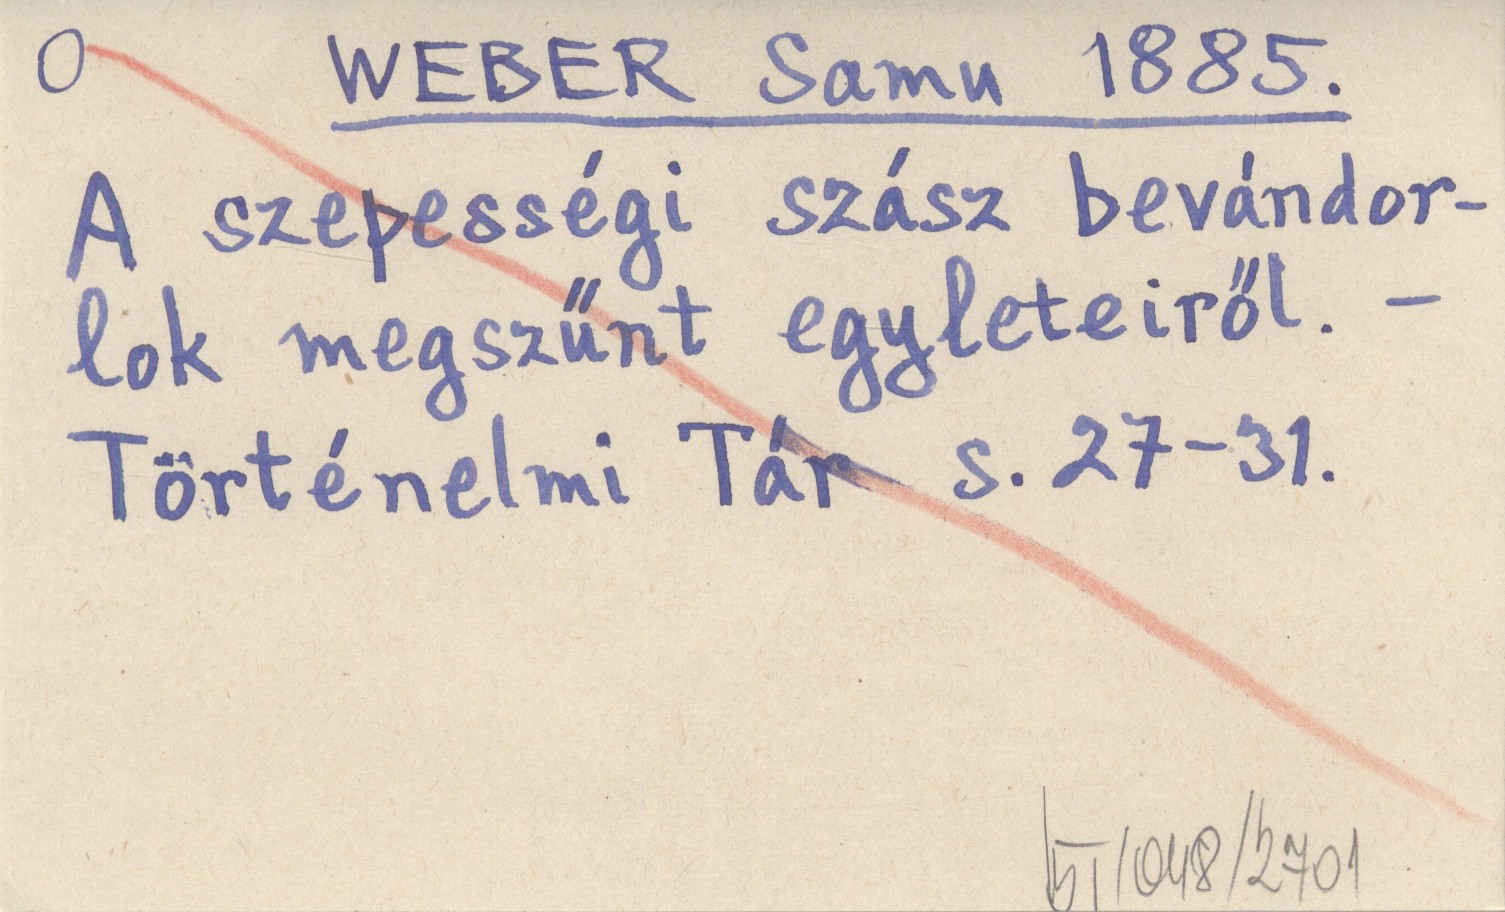 O WEBER Samu 1885.
A szepességi szász bevándor-
lok megszűnt egyleteiről. –
Történelmi Tár s. 27-31.
VI/048/2701